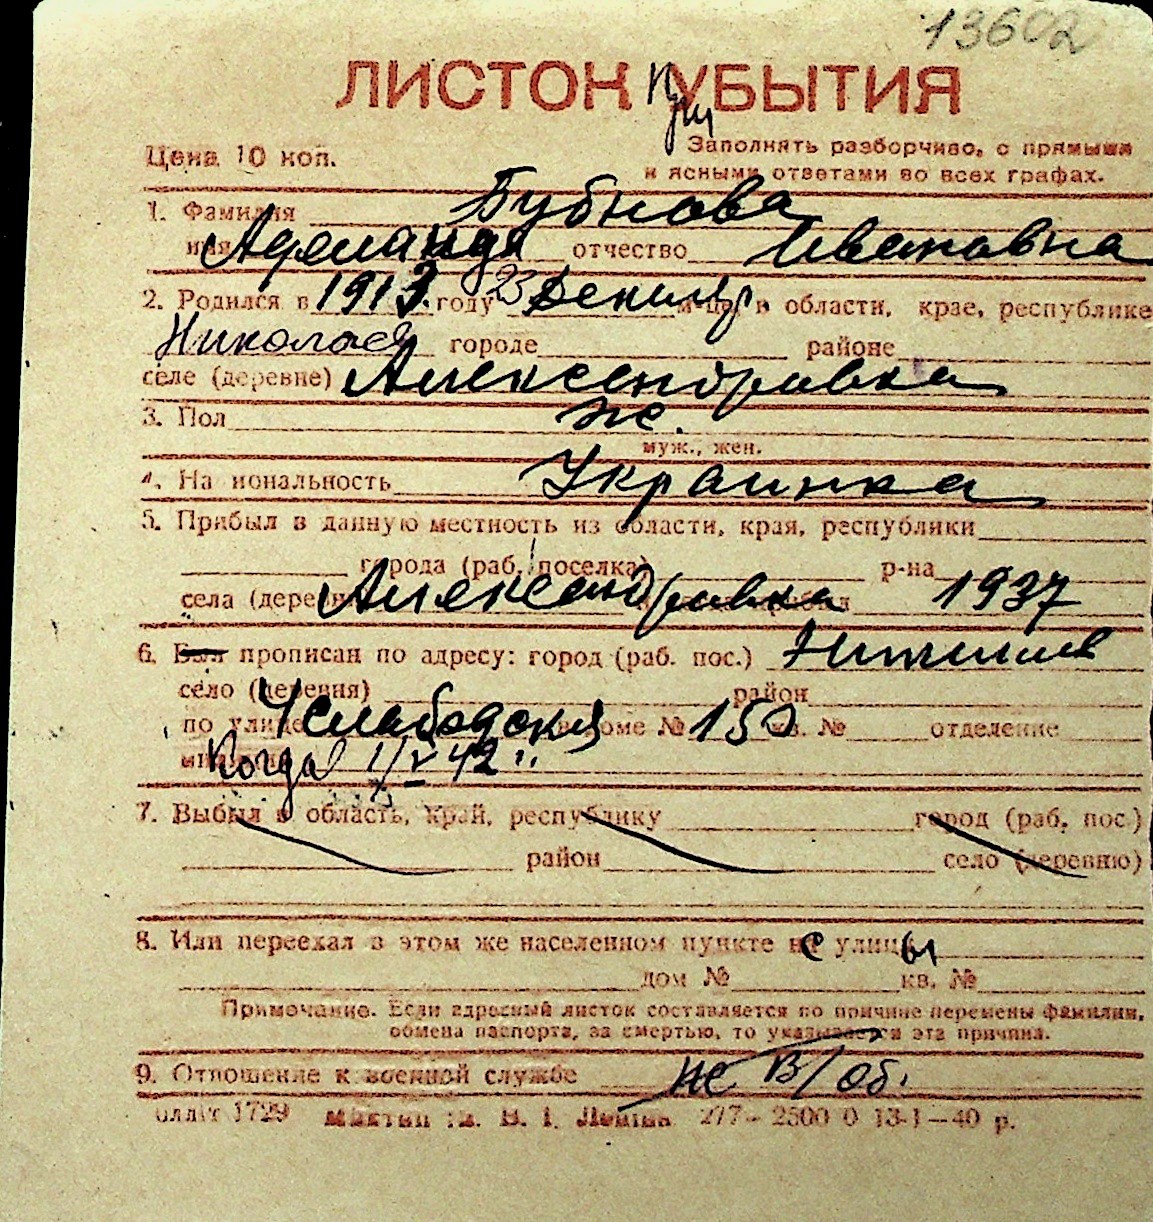 13602
ЛИСТОК УБЫТИЯ
При
Цена 10 коп.
Заполнять разборчиво, с прямыми
и ясными ответами во всех графах.
1. Фамилия Бубнова
имя отчество Ивановна
2. Родился в 1913 году 23 м-це, в области, крае, республике
городе районе
селе (деревне) Александровка
3. Пол ж.
муж., жен.
4. На иональность Украинка
5. Прибыл в данную местность из области, края, республики
города (раб. поселка) р-на
села (дерев Александровка 1937
6. Был прописан по адресу: город (раб. пос.)
село (деревня) район
по улице Услабодская доме № 150 кв. № отделение
Когда 1/V 42
7. Выбыл в область, край, республику город (раб. пос.)
район село (деревню)
8. Или переехал в этом же населенном пункте с улицы
дом № кв. №
Примечание. Если адресный листок составляется по причине перемены фамилии,
обмена паспорта, за смертью, то указывается эта причина.
9. Отношение к военной службе не в/об.
1729 277–2500 0 13-1–40 р.